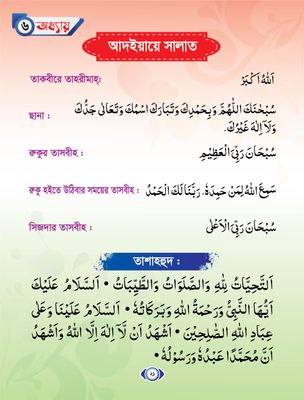 ৬ অধ্যায়
আদইয়ায়ে সালাত
তাকবীরে তাহরীমাহ: اَللهُ اَكْبَرُ
ছানা : سُبْحٰنَكَ اللّٰهُمَّ وَبِحَمْدِكَ وَتَبَارَكَ اسْمُكَ وَتَعَالٰى جَدُّكَ
وَلَآ اِلٰهَ غَيْرُكَ.
রুকুর তাসবীহ : سُبْحَانَ رَبِّيَ الْعَظِيْمِ
রুকু হইতে উঠিবার সময়ের তাসবীহ : سَمِعَ اللهُ لِمَنْ حَمِدَهٗ، رَبَّنَا لَكَ الْحَمْدُ
সিজদার তাসবীহ : سُبْحَانَ رَبِّيَ الْاَعْلٰى
তাশাহহুদ :
اَلتَّحِيَّاتُ لِلّٰهِ وَالصَّلَوَاتُ وَالطَّيِّبَاتُ • اَلسَّلَامُ عَلَيْكَ
اَيُّهَا النَّبِيُّ وَرَحْمَةُ اللهِ وَبَرَكَاتُهٗ • اَلسَّلَامُ عَلَيْنَا وَعَلٰى
عِبَادِ اللهِ الصّٰلِحِيْنَ • اَشْهَدُ اَنْ لَّآ اِلٰهَ اِلَّا اللهُ وَاَشْهَدُ
اَنَّ مُحَمَّدًا عَبْدُهٗ وَرَسُوْلُهٗ •